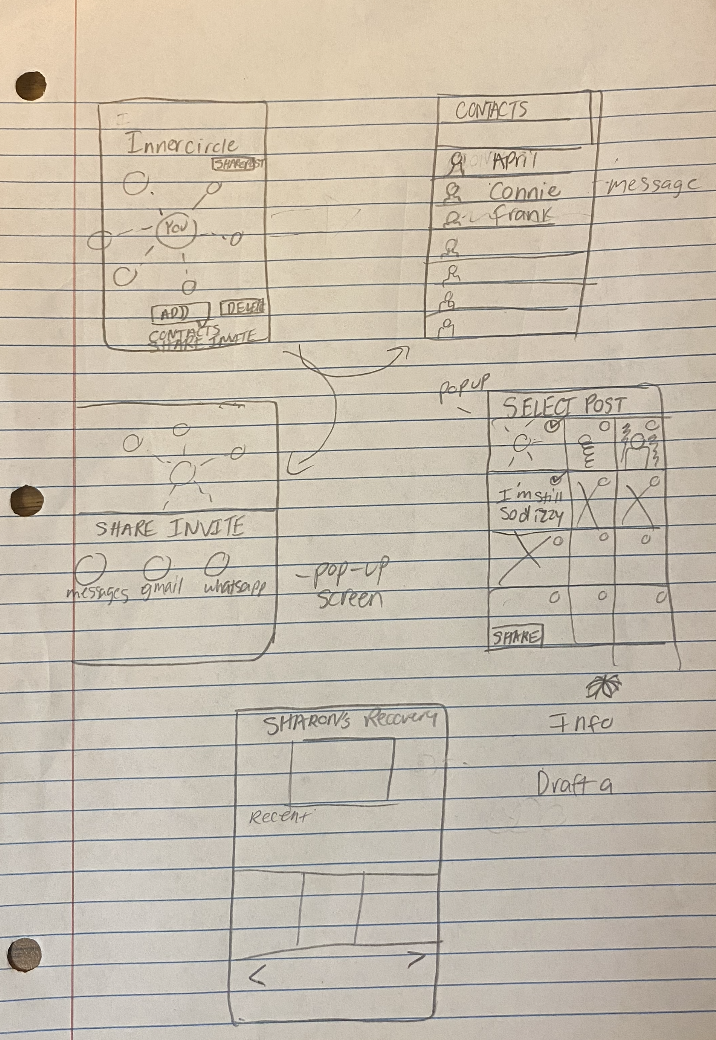 Innercircle
SHARE POST
YOU
ADD
DELETE
CONTACTS
SHARE INVITE
CONTACTS
April
Connie
frank
message
SHARE INVITE
messages gmail whatsapp
-pop-up
screen
popup
SELECT POST
I'm still
So dizzy
SHARE
SHARON's Recovery
Recent
Info
Draft a